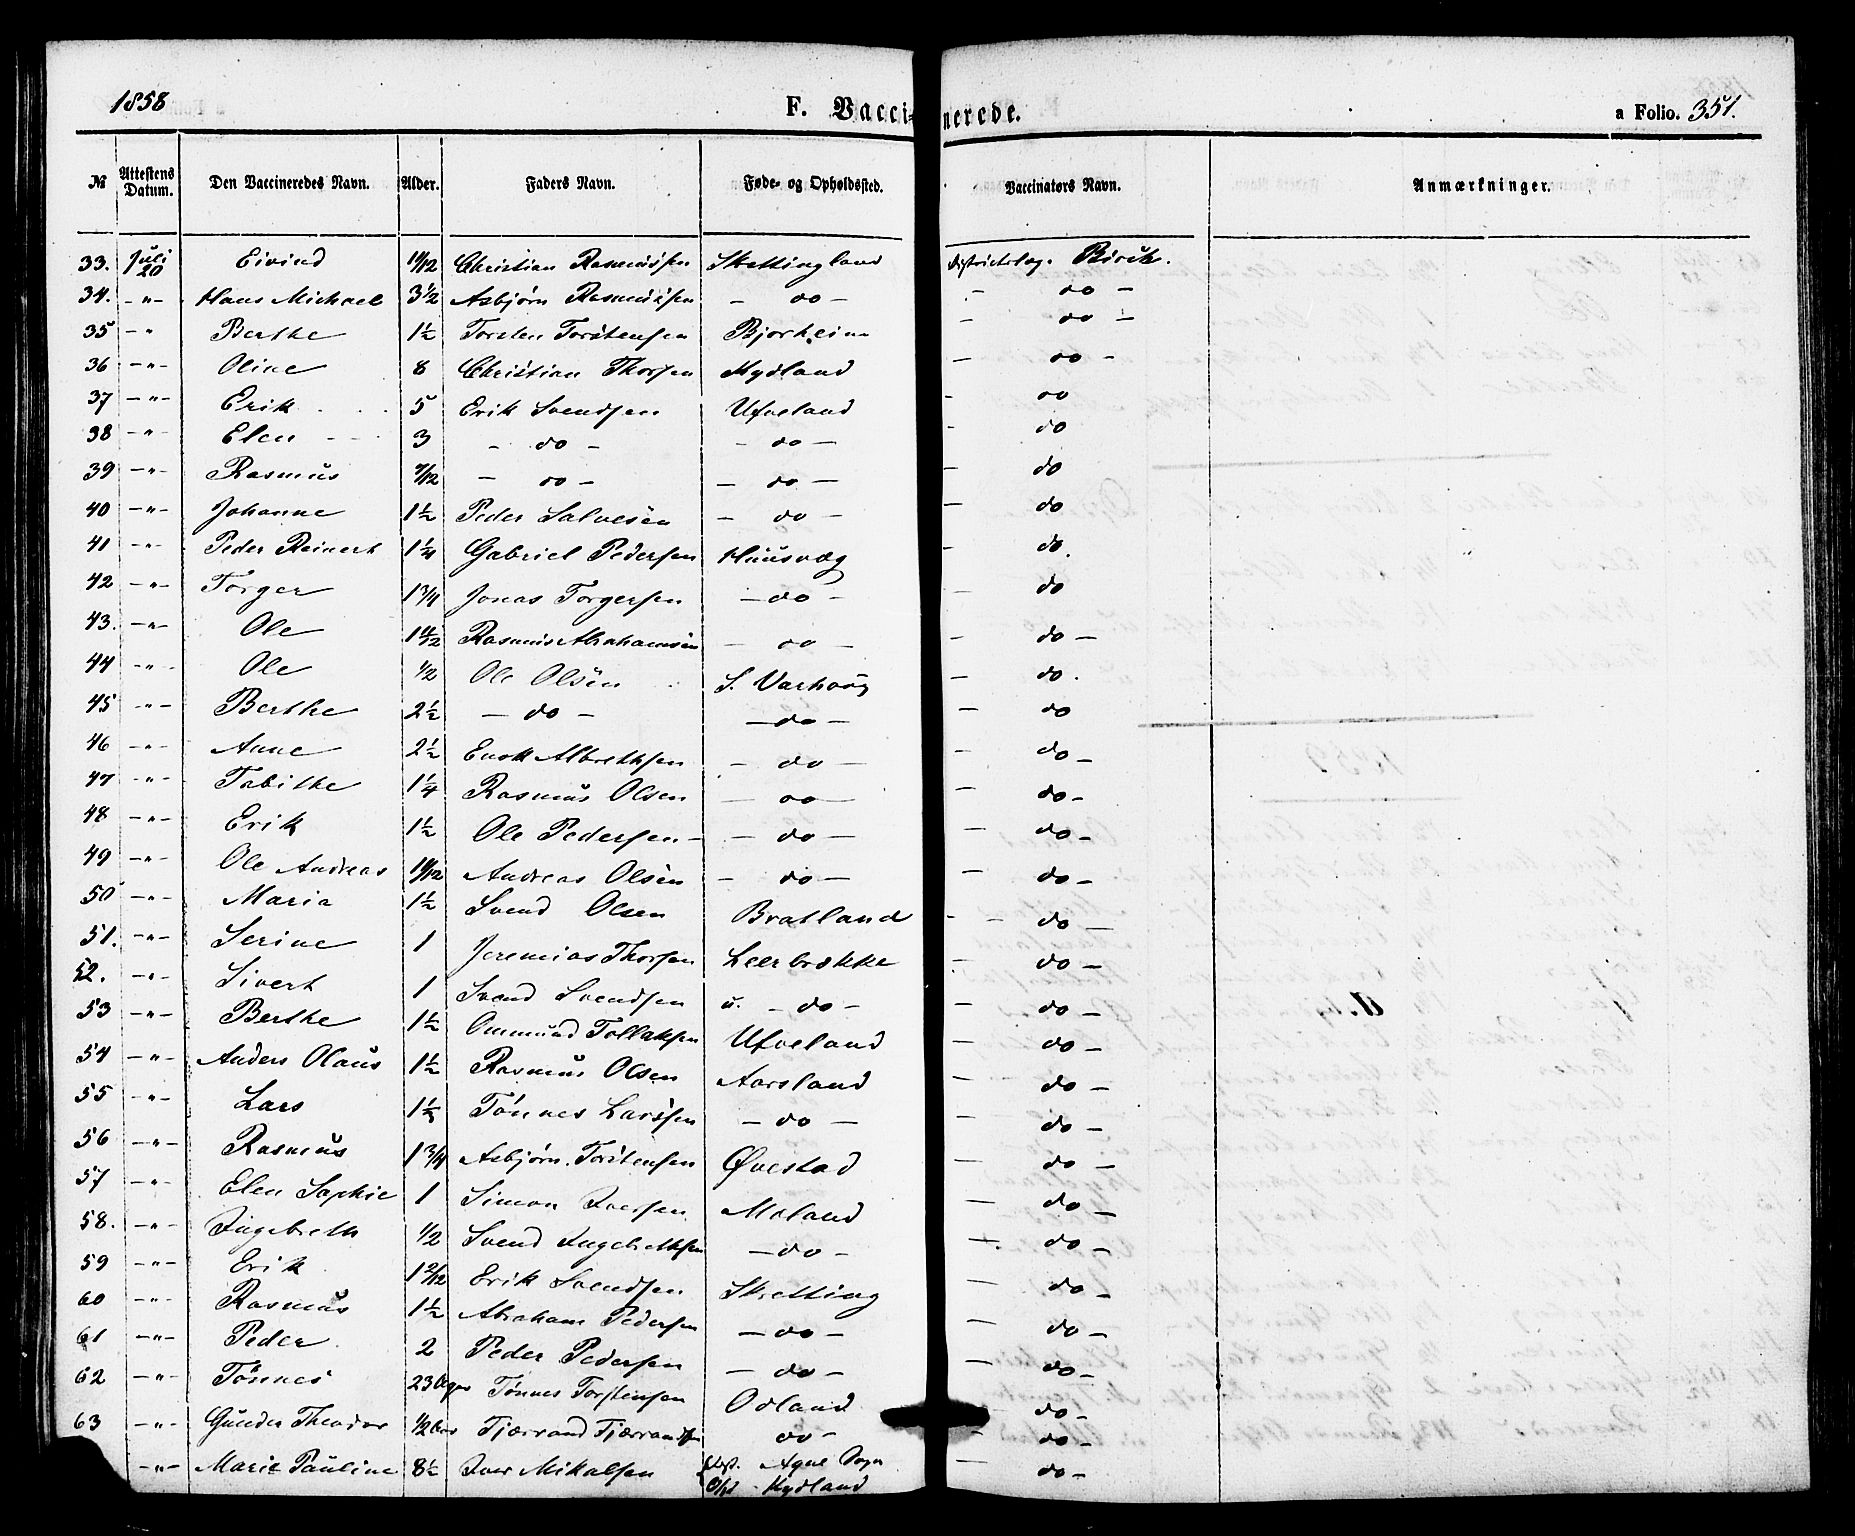 1858 F. Vaccinerede. a Folio. 351.
№ Attestens Datum. Den Vaccineredes Navn. Alder. Faders Navn. Føde- og Opholdssted. Vaccinators Navn. Anmærkninger.
33. Juli 20 Eivind Christian Rasmussen Skettingland Districtslæg. Birch.
34. -"- Hans Michael 3½ Asbjørn Rasmussen - do - - do -
35 -"- Berthe 1½ Torsten Torstensen Bjorheim - do -
36 -"- Oline 8 Christian Thorsen Mydland - do -
37 -"- Erik 5 Erik Svendsen Ufveland - do
38 -"- Elen 3 - do - - do - - do
39 -"- Rasmus - do - - do - - do
40 -"- Johanne 1½ Peder Salvesen - do - - do
41 -"- Peder Reinert 1¼ Gabriel Pedersen Huusvæg - do.
42 -"- Torger 1¾ Jonas Torgersen - do - - do
43. -"- Ole Rasmus Abrahamsen - do - - do -
44 -"- Ole ½ Ole Olsen S. Varhoug - do.
45 -"- Berthe 2½ - do - - do - - do
46 -"- Anne 2½ Enok Albrethsen - do - - do -
47 -"- Tabithe 1¼ Rasmus Olsen - do - - do -
48 -"- Erik 1½ Ole Pedersen - - do - - do -
49 -"- Ole Andreas Andreas Olsen - do - - do -
50 -"- Maria 1½ Svend Olsen Bratland - - do -
51. -"- Serine 1 Jeremias Thorsen Leerbrække - do -
52. -"- Sivert 1 Svend Svendsen u. - do - - do -
53 -"- Berthe 1½ Ommund Tollaksen Ufveland - do -
54 -"- Anders Olaus 1½ Rasmus Olsen Aarsland - do -
55 -"- Lars Tønnes Larssen - do - - do -
56 -"- Rasmus 1¾ Asbjørn Torstensen Øvestad - do -
57 -"- Elen Sophie 1 Simon Iversen Moland - do -
58. -"- Ingebreth ½ Svend Ingebrethsen - do - - do -
59 -"- Erik 1 2/12 Erik Svendsen Skretting - do -
60 -"- Rasmus 1½ Abraham Pedersen - do - - do -
61 -"- Peder 2 Peder Pedersen - do - - do -
62 -"- Tönnes Tønnes Torstensen Odland - do -
63 -"- Gunder Theodor Fjærrand Fjærrandsen do - - do -
-"- Marie Pauline 8½ Iver Mikalsen Sogn Mydland - do -